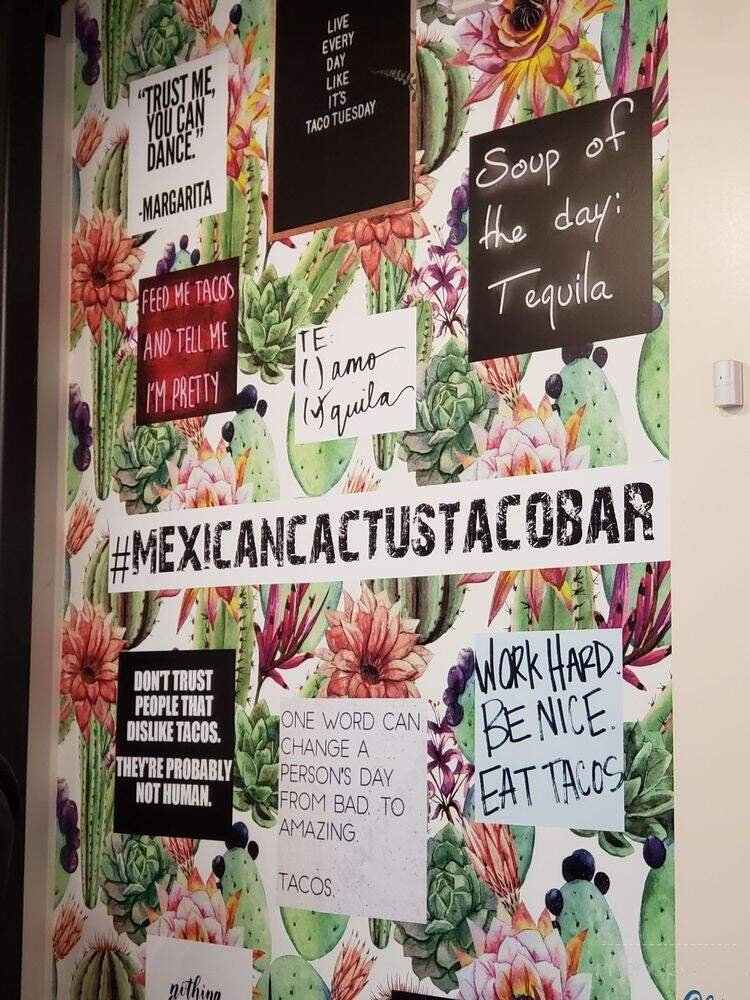 LIVE
EVERY
DAY
LIKE
IT'S
TACO TUESDAY
"TRUST ME,
YOU CAN
DANCE."
-MARGARITA
Soup of
the day:
Tequila
FEED ME TACOS
AND TELL ME
I'M PRETTY
TE:
( ) amo
(✓) quila
#MEXICANCACTUSTACOBAR
DON'T TRUST
PEOPLE THAT
DISLIKE TACOS.
THEY'RE PROBABLY
NOT HUMAN.
ONE WORD CAN
CHANGE A
PERSON'S DAY
FROM BAD, TO
AMAZING.
TACOS.
WORK HARD.
BE NICE.
EAT TACOS
nothing